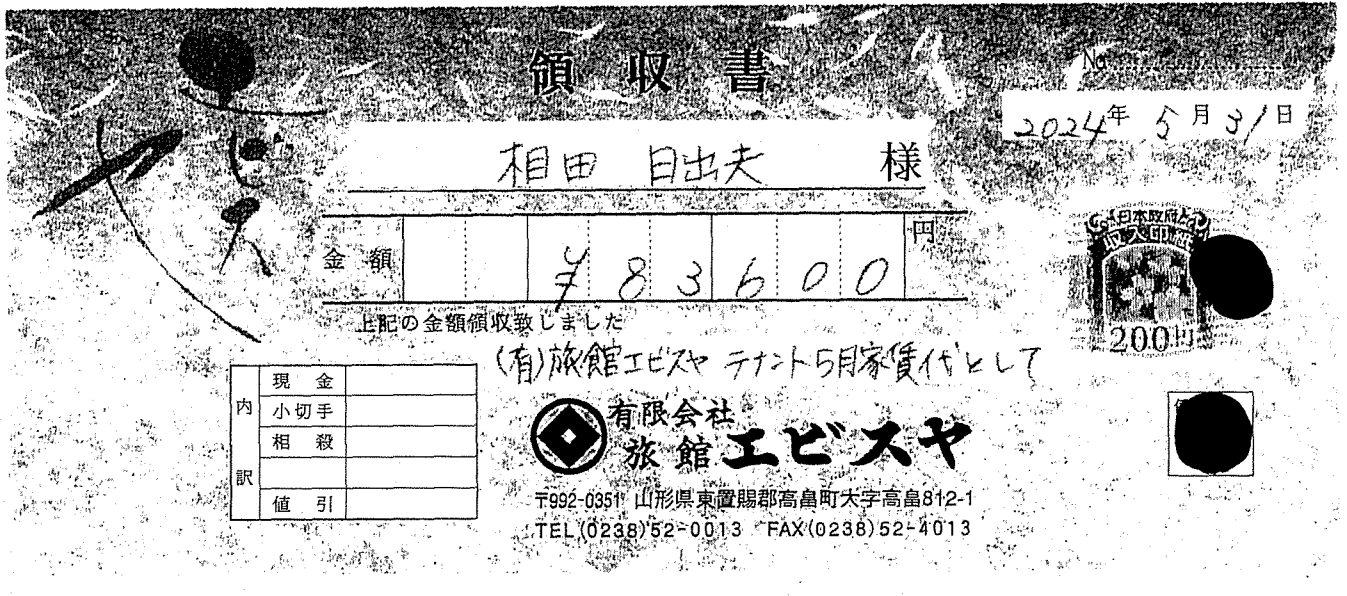 領収書
No.
2024年 5月 31日
相田 日出夫 様
金額 ¥83600円
上記の金額領収致しました
(有)旅館エビスヤ テナント5月家賃代として
日本政府
収入印紙
200円
内訳
現金
小切手
相殺
値引
有限会社
旅館 エビスヤ
〒992-0351 山形県東置賜郡高畠町大字高畠812-1
TEL(0238)52-0013 FAX(0238)52-4013